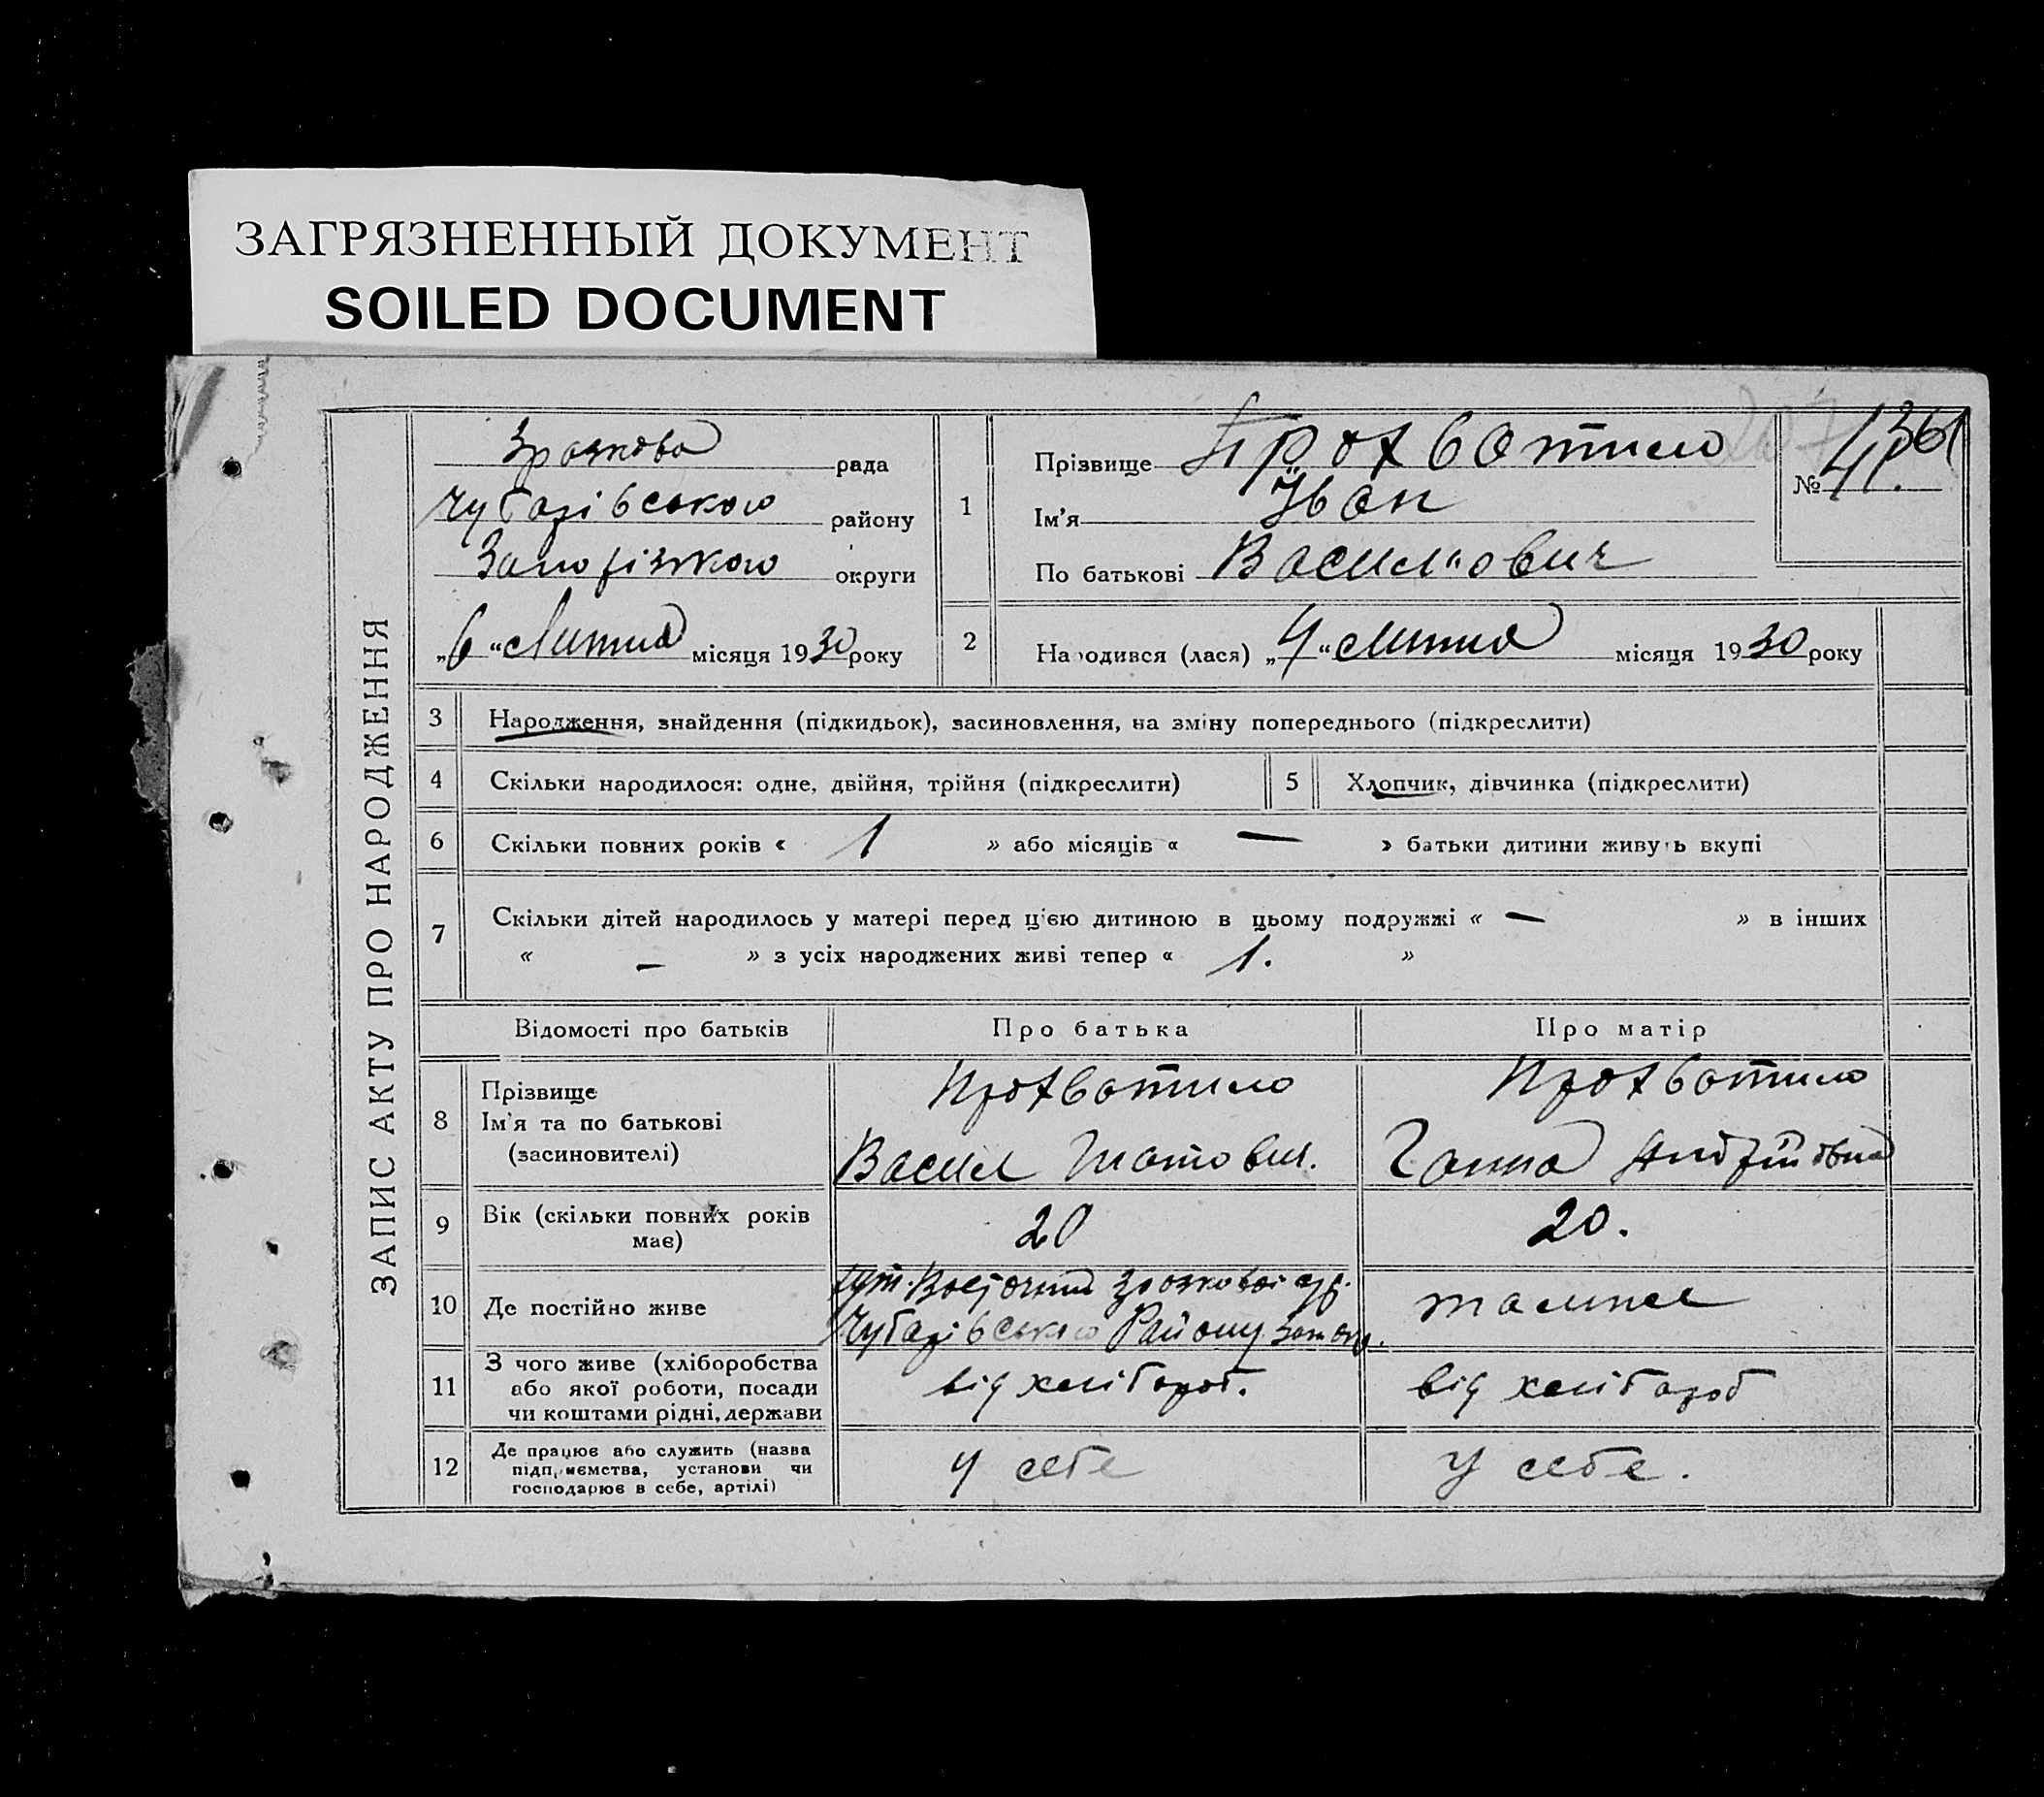 ЗАГРЯЗНЕННЫЙ ДОКУМЕНТ
SOILED DOCUMENT
ЗАПИС АКТУ ПРО НАРОДЖЕННЯ
Зразкова рада
Чубарівського району
Запорізького округи
„6“ Липня місяця 1930 року
1
Прізвище Прохватило
Ім'я Іван
По батькові Васильович
№ 41. 361
2 Народився (лася) „4“ Липня місяця 1930 року
3 Народження, знайдення (підкидьок), засиновлення, на зміну попереднього (підкреслити)
4 Скільки народилося: одне, двійня, трійня (підкреслити) 5 Хлопчик, дівчинка (підкреслити)
6 Скільки повних років « 1 » або місяців « — » батьки дитини живуть вкупі
7 Скільки дітей народилось у матері перед цією дитиною в цьому подружжі « — » в інших
« — » з усіх народжених живі тепер « 1. »
Відомості про батьків Про батька Про матір
8 Прізвище
Ім'я та по батькові
(засиновителі)
Прохватило
Васил
Прохватило
Ганна Андріївна
9 Вік (скільки повних років
має)
20 20.
10 Де постійно живе
Чубарівського Району
11 З чого живе (хліборобства
або якої роботи, посади
чи коштами рідні, держави
від хлібороб. від хлібороб
12 Де працює або служить (назва
підприємства, установи чи
господарює в себе, артілі)
у себе у себе.